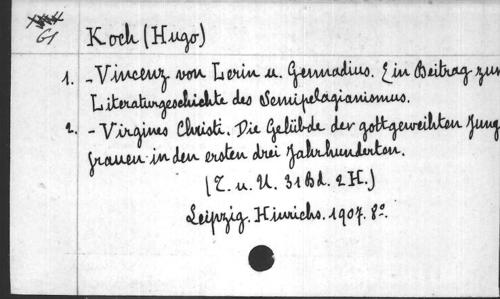 61
Koch (Hugo)
1. - Vincenz von Lerin u. Gennadius. Ein Beitrag zur
Literaturgeschichte des Semipelagianismus.
2. - Virgines Christi. Die Gelübde der gottgeweihten Jung
frauen in den ersten drei Jahrhunderten.
(T. u. U. 31 Bd. 2 H.)
Leipzig. Hinrichs. 1907. 8º.